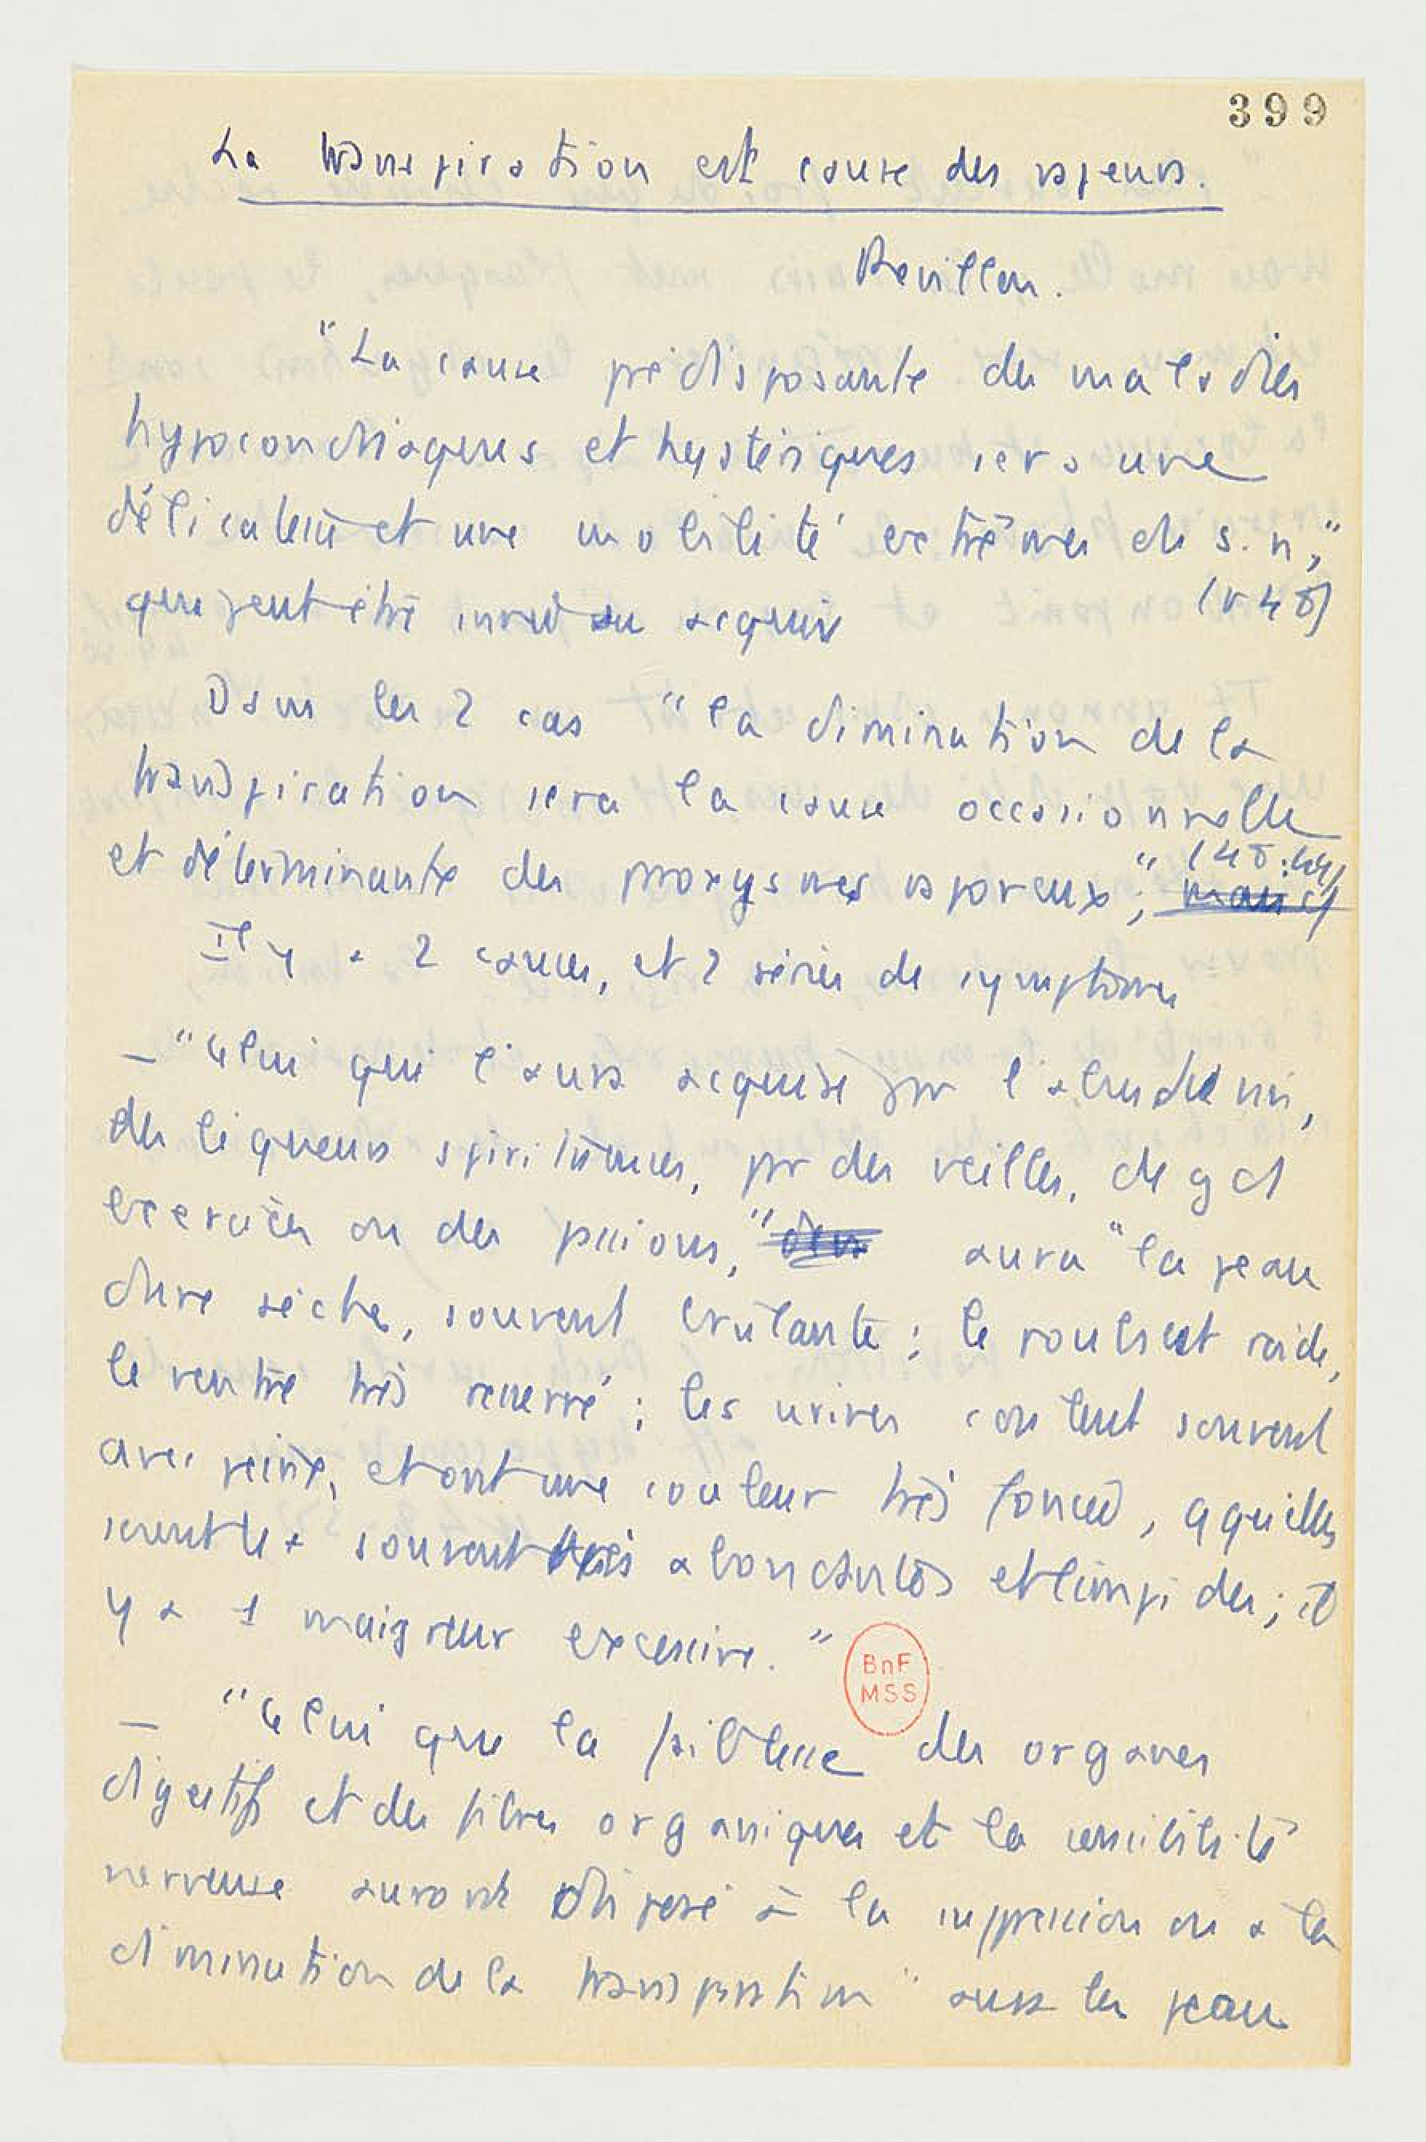 399
La transpiration est cause des vapeurs.
Revillon.
"La cause prédisposante des maladies
hypocondriaques et hystériques sera une
délicatesse et une mobilité extrêmes du s. n,"
qui peut être innée ou acquise (p 48)
Dans les 2 cas "la diminution de la
transpiration sera la cause occasionnelle
et déterminante des paroxysmes vaporeux"; (48-49)
Il y a 2 causes, et 2 séries de symptômes
- "Celui qui l'aura acquise par l'abus du vin,
des liqueurs spiritueuses, par des veilles, de gd
exercices ou des passions," aura "la peau
dure sèche, souvent brûlante; le pouls est roide,
le ventre très resserré; les urines coulent souvent
avec peine, et ont une couleur très foncée, qquelles
soient souvent très abondantes et limpides; il
y a 1 maigreur excessive."
- "Celui que la faiblesse des organes
digestifs et des fibres organiques et la sensibilité
nerveuse auront disposé à la suppression ou a la
diminution de la transpiration" aura la peau
BnF
MSS